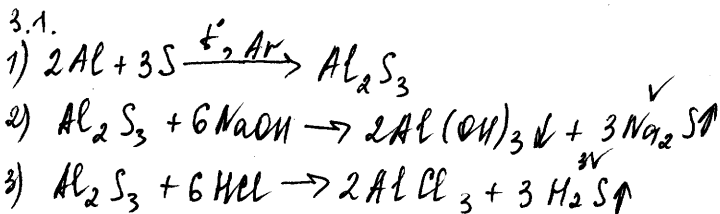 3.1.
1) 2Al + 3S —t°, Ar→ Al₂S₃
2) Al₂S₃ + 6NaOH → 2Al(OH)₃↓ + 3Na₂S↑
3) Al₂S₃ + 6HCl → 2AlCl₃ + 3H₂S↑